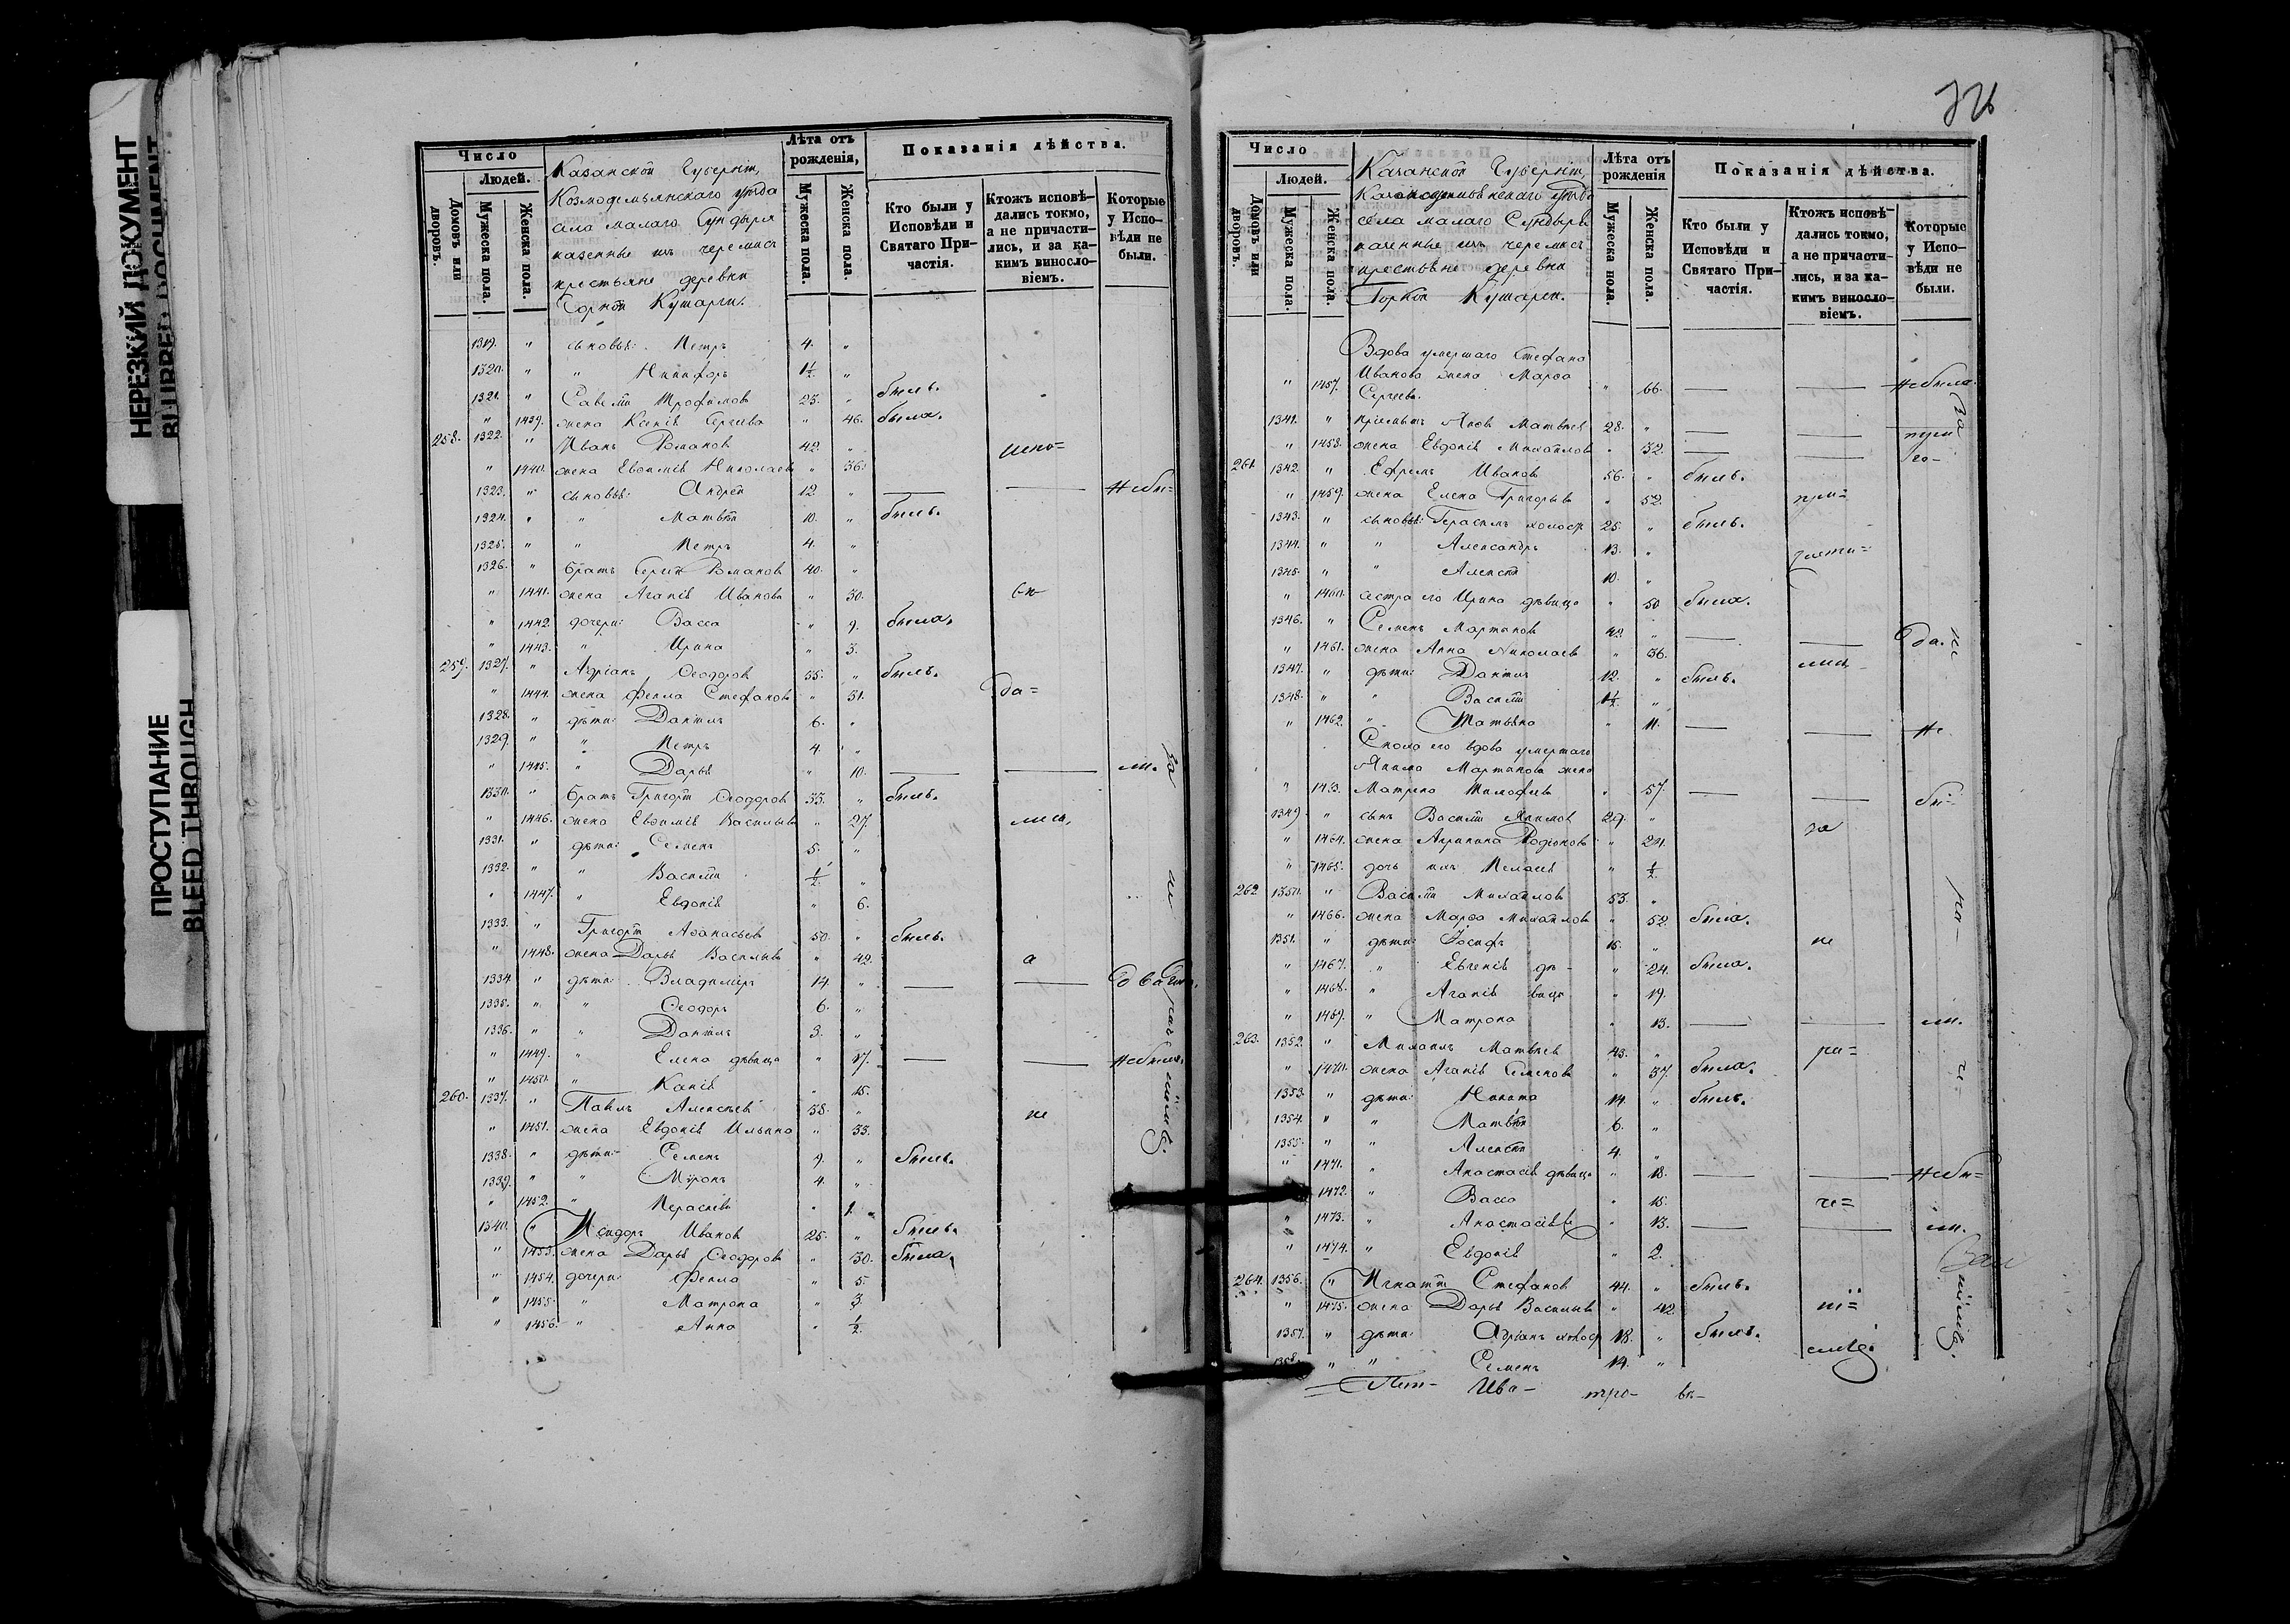 НЕРЕЗКИЙ ДОКУМЕНТ
BLURRED DOCUMENT
ПРОСТУПАНИЕ
BLEED THROUGH
Число
Людей.
Домовъ или дворовъ.
Мужеска пола.
Женска пола.
Казанской Губерніи,
Козмодемьянскаго уѣзда
села малаго Сундыря
казенные изъ черемисъ
крестьяне деревни
Горной Кушерги.
Лѣта отъ рожденія,
Мужеска пола.
Женска пола.
Показанія дѣйства.
Кто были у Исповѣди и Святаго При-частія.
Ктожъ исповѣ-дались токмо, а не причасти-лись, и за ка-кимъ виносло-віемъ.
Которые у Испо-вѣди не были.
1319. " сыновья: Петръ 4. "
1320. " " Никифоръ 1½. "
1321. " Савелій Трофимовъ 25. " былъ.
" 1439. жена Ксенія Сергѣева " 46. была.
258. 1322. " Иванъ Романовъ 42. "
" 1440. жена Евфимія Николаева " 36. испо=
1323. " сыновья: Андрей 12. " — — Небы=
1324. " " Матвѣй 10. " былъ.
1325. " " Петръ 4. "
1326. " братъ Сергѣй Романовъ 40. "
" 1441. жена Агапія Иванова " 30. вѣ
" 1442. дочери: Васса " 9. была.
" 1443. " Ирина " 3.
259. 1327. " Адріанъ Ѳеодоровъ 35. " былъ.
" 1444. жена Ѳекла Стефанова " 31. да=
1328. " дѣти: Даніилъ 6. "
1329. " " Петръ 4. "
" 1445. " Дарья " 10. — — ли.
1330. " братъ Григорій Ѳеодоровъ 33. " былъ.
" 1446. жена Евфимія Васильева " 27. лись,
1331. " дѣти: Семенъ 5. "
1332. " " Василій ½. "
" 1447. " Евдокія " 6.
1333. " Григорій Аѳанасьевъ 50. " былъ.
" 1448. жена Дарья Васильева " 42. а
1334. " дѣти: Владиміръ 14. " — —
1335. " " Ѳеодоръ 6. "
1336. " " Даніилъ 3. "
" 1449. " Елена дѣвица " 17. — — Небыла.
" 1450. " Ксенія " 15.
260. 1337. " Павелъ Алексѣевъ 38. "
" 1451. жена Евдокія Ильина " 33. не
1338. " дѣти: Семенъ 9. " былъ.
1339. " " Миронъ 4. "
" 1452. " Параскева " 1.
1340. " Исидоръ Ивановъ 25. " былъ.
" 1453. жена Дарья Ѳеодорова " 30. была.
" 1454. дочери: Ѳекла " 5.
" 1455. " Матрона " 3.
" 1456. " Анна " ½.
Число
Людей.
Домовъ или дворовъ.
Мужеска пола.
Женска пола.
Казанской Губерніи,
села малаго Сундыря
казенные изъ черемисъ
крестьяне деревни
Горной Кушерги.
Лѣта отъ рожденія
Мужеска пола.
Женска пола.
Показанія дѣйства.
Кто были у Исповѣди и Святаго При-частія.
Ктожъ исповѣ-дались токмо, а не причасти-лись, и за ка-кимъ винословіемъ.
Которые у Испо-вѣди не были.
Вдова умершаго Стефана
Иванова жена Марѳа
" 1457. Сергѣева. " 66. — — Небыла.
1341. " пріемышъ Яковъ Матвѣевъ 28. " — —
" 1458. жена Евдокія Михайлова " 32. — —
261. 1342. " Ефремъ Ивановъ 56. " былъ.
" 1459. жена Елена Григорьева " 52. при=
1343. " сыновья: Герасимъ холостъ 25. " былъ.
1344. " " Александръ 13. "
1345. " " Алексѣй 10. "
" 1460. сестра его Ирина дѣвица " 50. была.
1346. " Семенъ Мартыновъ 42. " — —
" 1461. жена Анна Николаева " 36. лись
1347. " дѣти: Даніилъ 12. " былъ.
1348. " " Василій 1½. "
" 1462. " Татьяна " 11. — — Не
Сноха его вдова умершаго
Якима Мартынова жена
" 1463. Матрена Тимофеева " 57. — — бы=
1349. " сынъ Василій Якимовъ 29. "
" 1464. жена Акулина Родіонова " 24. за
" 1465. дочь ихъ Пелагея " ½.
262. 1350. " Василій Михайловъ 53. "
" 1466. жена Марѳа Михайлова " 52. была.
1351. " дѣти: Іосифъ 15. " не
" 1467. " Евгенія дѣ- " 24. была.
" 1468. " Агапія вицы " 19.
" 1469. " Матрона " 13. — — ли.
263. 1352. " Михаилъ Матвѣевъ 43. " ра=
" 1470. жена Агапія Семенова " 37. была.
1353. " дѣти: Никита 14. " былъ.
1354. " " Матвѣй 6. "
1355. " " Алексѣй 4. "
" 1471. " Анастасія дѣвица " 18. — — Небы=
" 1472. " Васса " 15. че=
" 1473. " Анастасія " 13. — — ли.
" 1474. " Евдокія " 2.
264. 1356. " Игнатій Стефановъ 44. " былъ.
" 1475. жена Дарья Васильева " 42. ні=
1357. " дѣти: Адріанъ холостъ 18. " былъ.
1358. " " Семенъ 14. " емъ.
Ива- тро- въ-